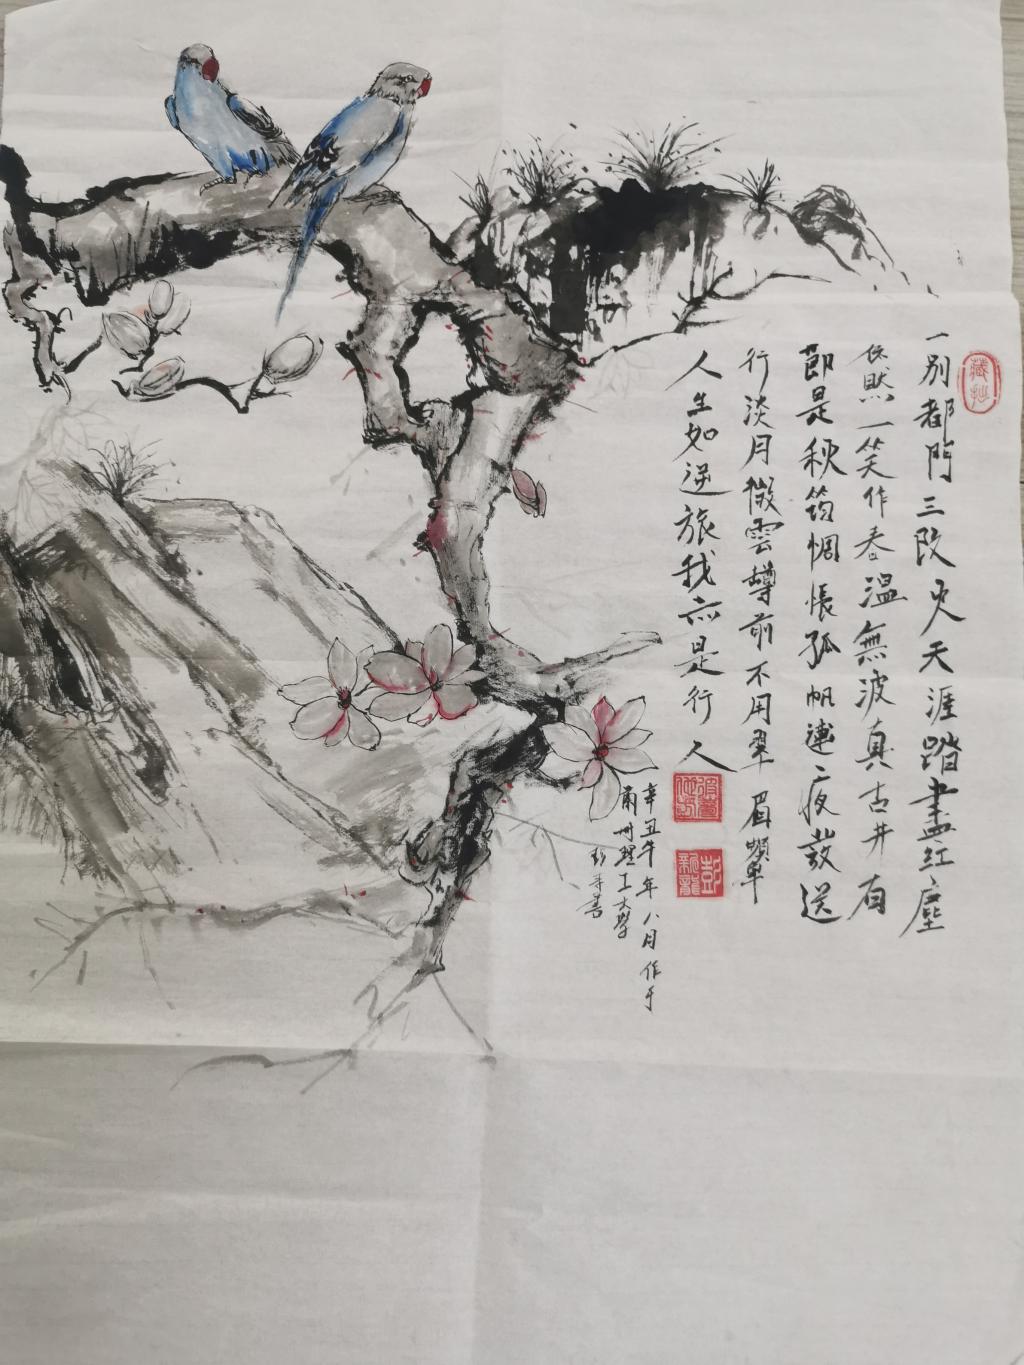 一别都門三改火天涯踏盡紅塵
依然一笑作春温無波真古井有
節是秋筠惆悵孤帆連夜發送
行淡月微雲尊前不用翠眉顰
人生如逆旅我亦是行人
辛丑牛年八月作于
蘭州理工大學
彭
藏拙
彭新龍